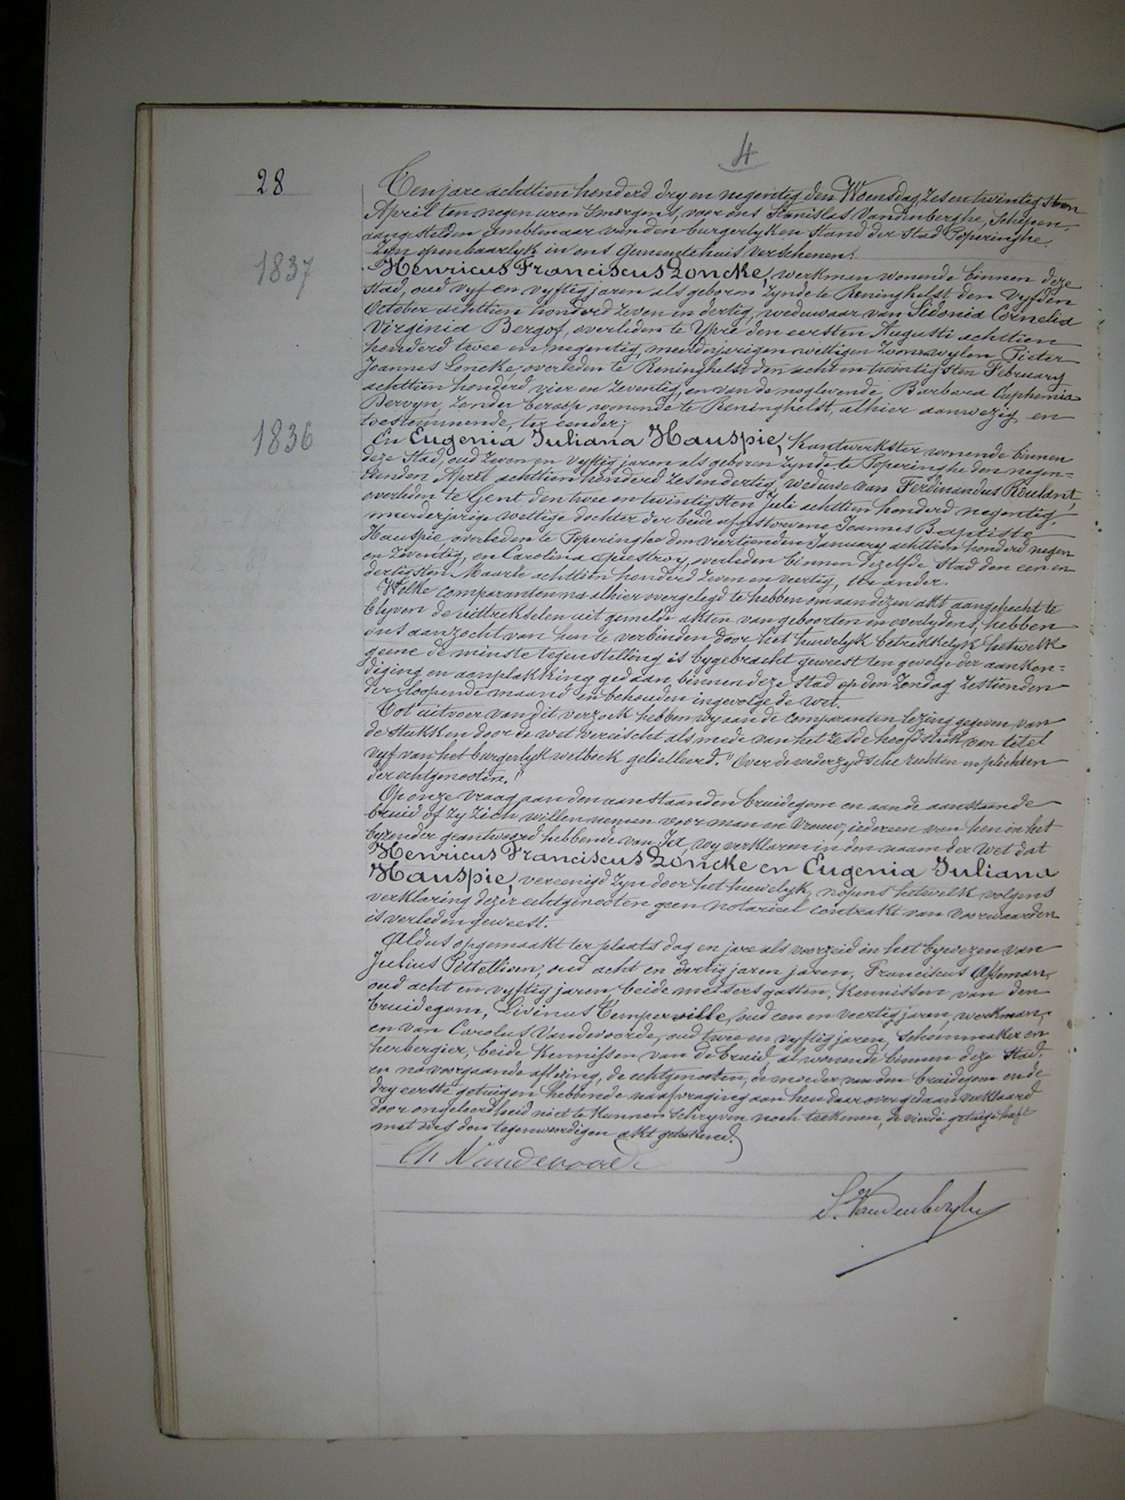 4
28
Ten jare achttien honderd dry en negentig den Woensdag zes en twintigsten
April ten negen uren 's morgens, voor ons Stanislas Vandenberghe, Schepen
aangestelden Ambtenaar van den burgerlyken stand der Stad Poperinghe,
zyn openbaarlyk in ons Gemeentehuis verschenen:
1837
Henricus Franciscus Loncke, werkman wonende binnen deze
stad, oud vyf en vyftig jaren als geboren zynde te Reninghelst den vyfden
October achttien honderd zeven en dertig, weduwaar van Sidonia Cornelia
Virginia Bergof, overleden te Yper den eersten Augusti achttien
honderd twee en negentig, meerderjarigen wettigen zoon van wylen Pieter
Joannes Loncke, overleden te Reninghelst den acht en twintigsten February
achttien honderd vier en zeventig, en van de noglevende Barbara Euphemia
Dervyn, zonder beroep wonende te Reninghelst, alhier aanwezig en
toestemmende, ter eender;
1836
En Eugenia Juliana Hauspie, Kantwerkster wonende binnen
deze Stad, oud zeven en vyftig jaren als geboren zynde te Poperinghe den negen-
tienden April achttien honderd zes en dertig, weduwe van Ferdinandus Roulant,
overleden te Gent den twee en twintigsten Juli achttien honderd negentig,
meerderjarige wettige dochter der beide afgestorvene Joannes Baptiste
Hauspie overleden te Poperinghe den veertienden January achttien honderd negen
en zeventig, en Carolina, overleden binnen dezelfde stad den een en
dertigsten Maarte achttien honderd zeven en veertig, ter ander.
Welke comparanten na alhier overgelegd te hebben om aan dezen akt aangehecht te
blyven de uittrekselen uit gemelde akten van geboorten en overlydens, hebben
ons aanzocht van hen te verbinden door het huwelyk betrekkelyk hetwelk
geene de minste tegenstelling is bygebracht geweest ten gevolge der aankon-
diging en aanplakking gedaan binnen deze stad op den Zondag zestienden
der loopende maand en behouden ingevolge de wet.
Tot uitvoer van dit verzoek hebben wy aan de comparanten lezing gegeven van
de stukken door de wet vereischt als mede van het zesde hoofdstuk van titel
vyf van het burgerlyk wetboek getitelleerd. "Over de wederzydsche rechten en plichten
der echtgenooten."
Op onze vraag aan den aanstaanden bruidegom en aan de aanstaande
bruid of zy zich willen nemen voor man en vrouw, iedereen van hen in het
byzonder geantwoord hebbende van Ja, wy verklaren in den naam der Wet dat
Henricus Franciscus Loncke en Eugenia Juliana
Hauspie, vereenigd zyn door het huwelyk, nopens hetwelk volgens
verklaring dezer echtgenooten geen notarieel contrakt van voorwaarden
is verleden geweest.
Aldus opgemaakt ter plaats dag en jare als voorzeid in het bywezen van
Julius Pittellioen, oud acht en dertig jaren jaren, Franciscus Asseman,
oud acht en vyftig jaren, beide metsersgasten, Kennissen van den
bruidegom, Livinus Temperville, oud een en veertig jaren, werkman,
en van Carolus Vandevoorde, oud twee en vyftig jaren, schoenmaker en
herbergier, beide Kennissen van de bruid al wonende binnen deze Stad,
en na voorgaande aflezing, de echtgenooten, de moeder van den bruidegom en de
dry eerste getuigen hebbende na afvraging aan hen daarover gedaan verklaard
door ongeleerdheid niet te kunnen schryven noch teekenen, de vierde getuige heeft
met ons den tegenwoordigen akt geteekend.
Ch Vandevoorde
S. Vandenberghe